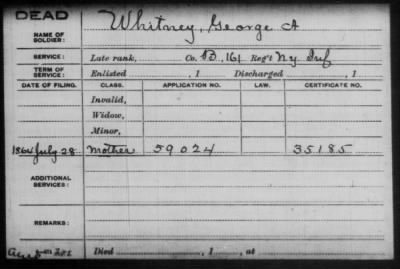 DEAD
NAME OF SOLDIER: Whitney, George A
SERVICE: Late rank, Co. D, 161 Reg't Ny Inf
TERM OF SERVICE: Enlisted , 1 Discharged , 1
DATE OF FILING. CLASS. APPLICATION NO. LAW. CERTIFICATE NO.
Invalid,
Widow,
Minor,
1864 July 28 Mother 59024 35185
ADDITIONAL SERVICES:
REMARKS:
Died , 1 , at